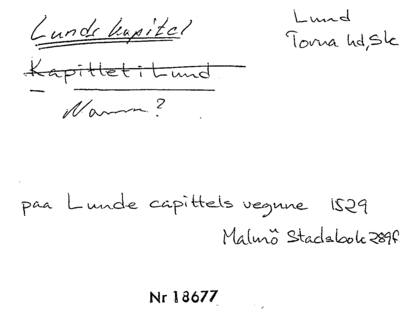 Lunds kapitel
Lund
Torna hd, Sk
Kapitlet i Lund
Namn?
paa Lunde capittels vegnne 1529
Malmö Stadsbok 289f
Nr 18677